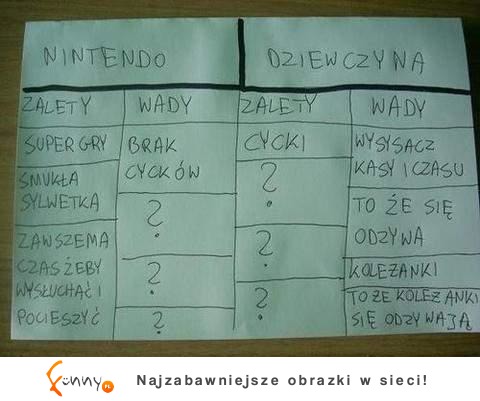 NINTENDO
DZIEWCZYNA
ZALETY
WADY
ZALETY
WADY
SUPER GRY
BRAK
CYCKÓW
CYCKI
WYSYSACZ
KASY I CZASU
SMUKŁA
SYLWETKA
?
?
TO ŻE SIĘ
ODZYWA
ZAWSZE MA
CZAS ŻEBY
WYSŁUCHAĆ I
POCIESZYĆ
?
?
?
?
KOLEŻANKI
TO ŻE KOLEŻANKI
SIĘ ODZYWAJĄ
funny.PL
Najzabawniejsze obrazki w sieci!